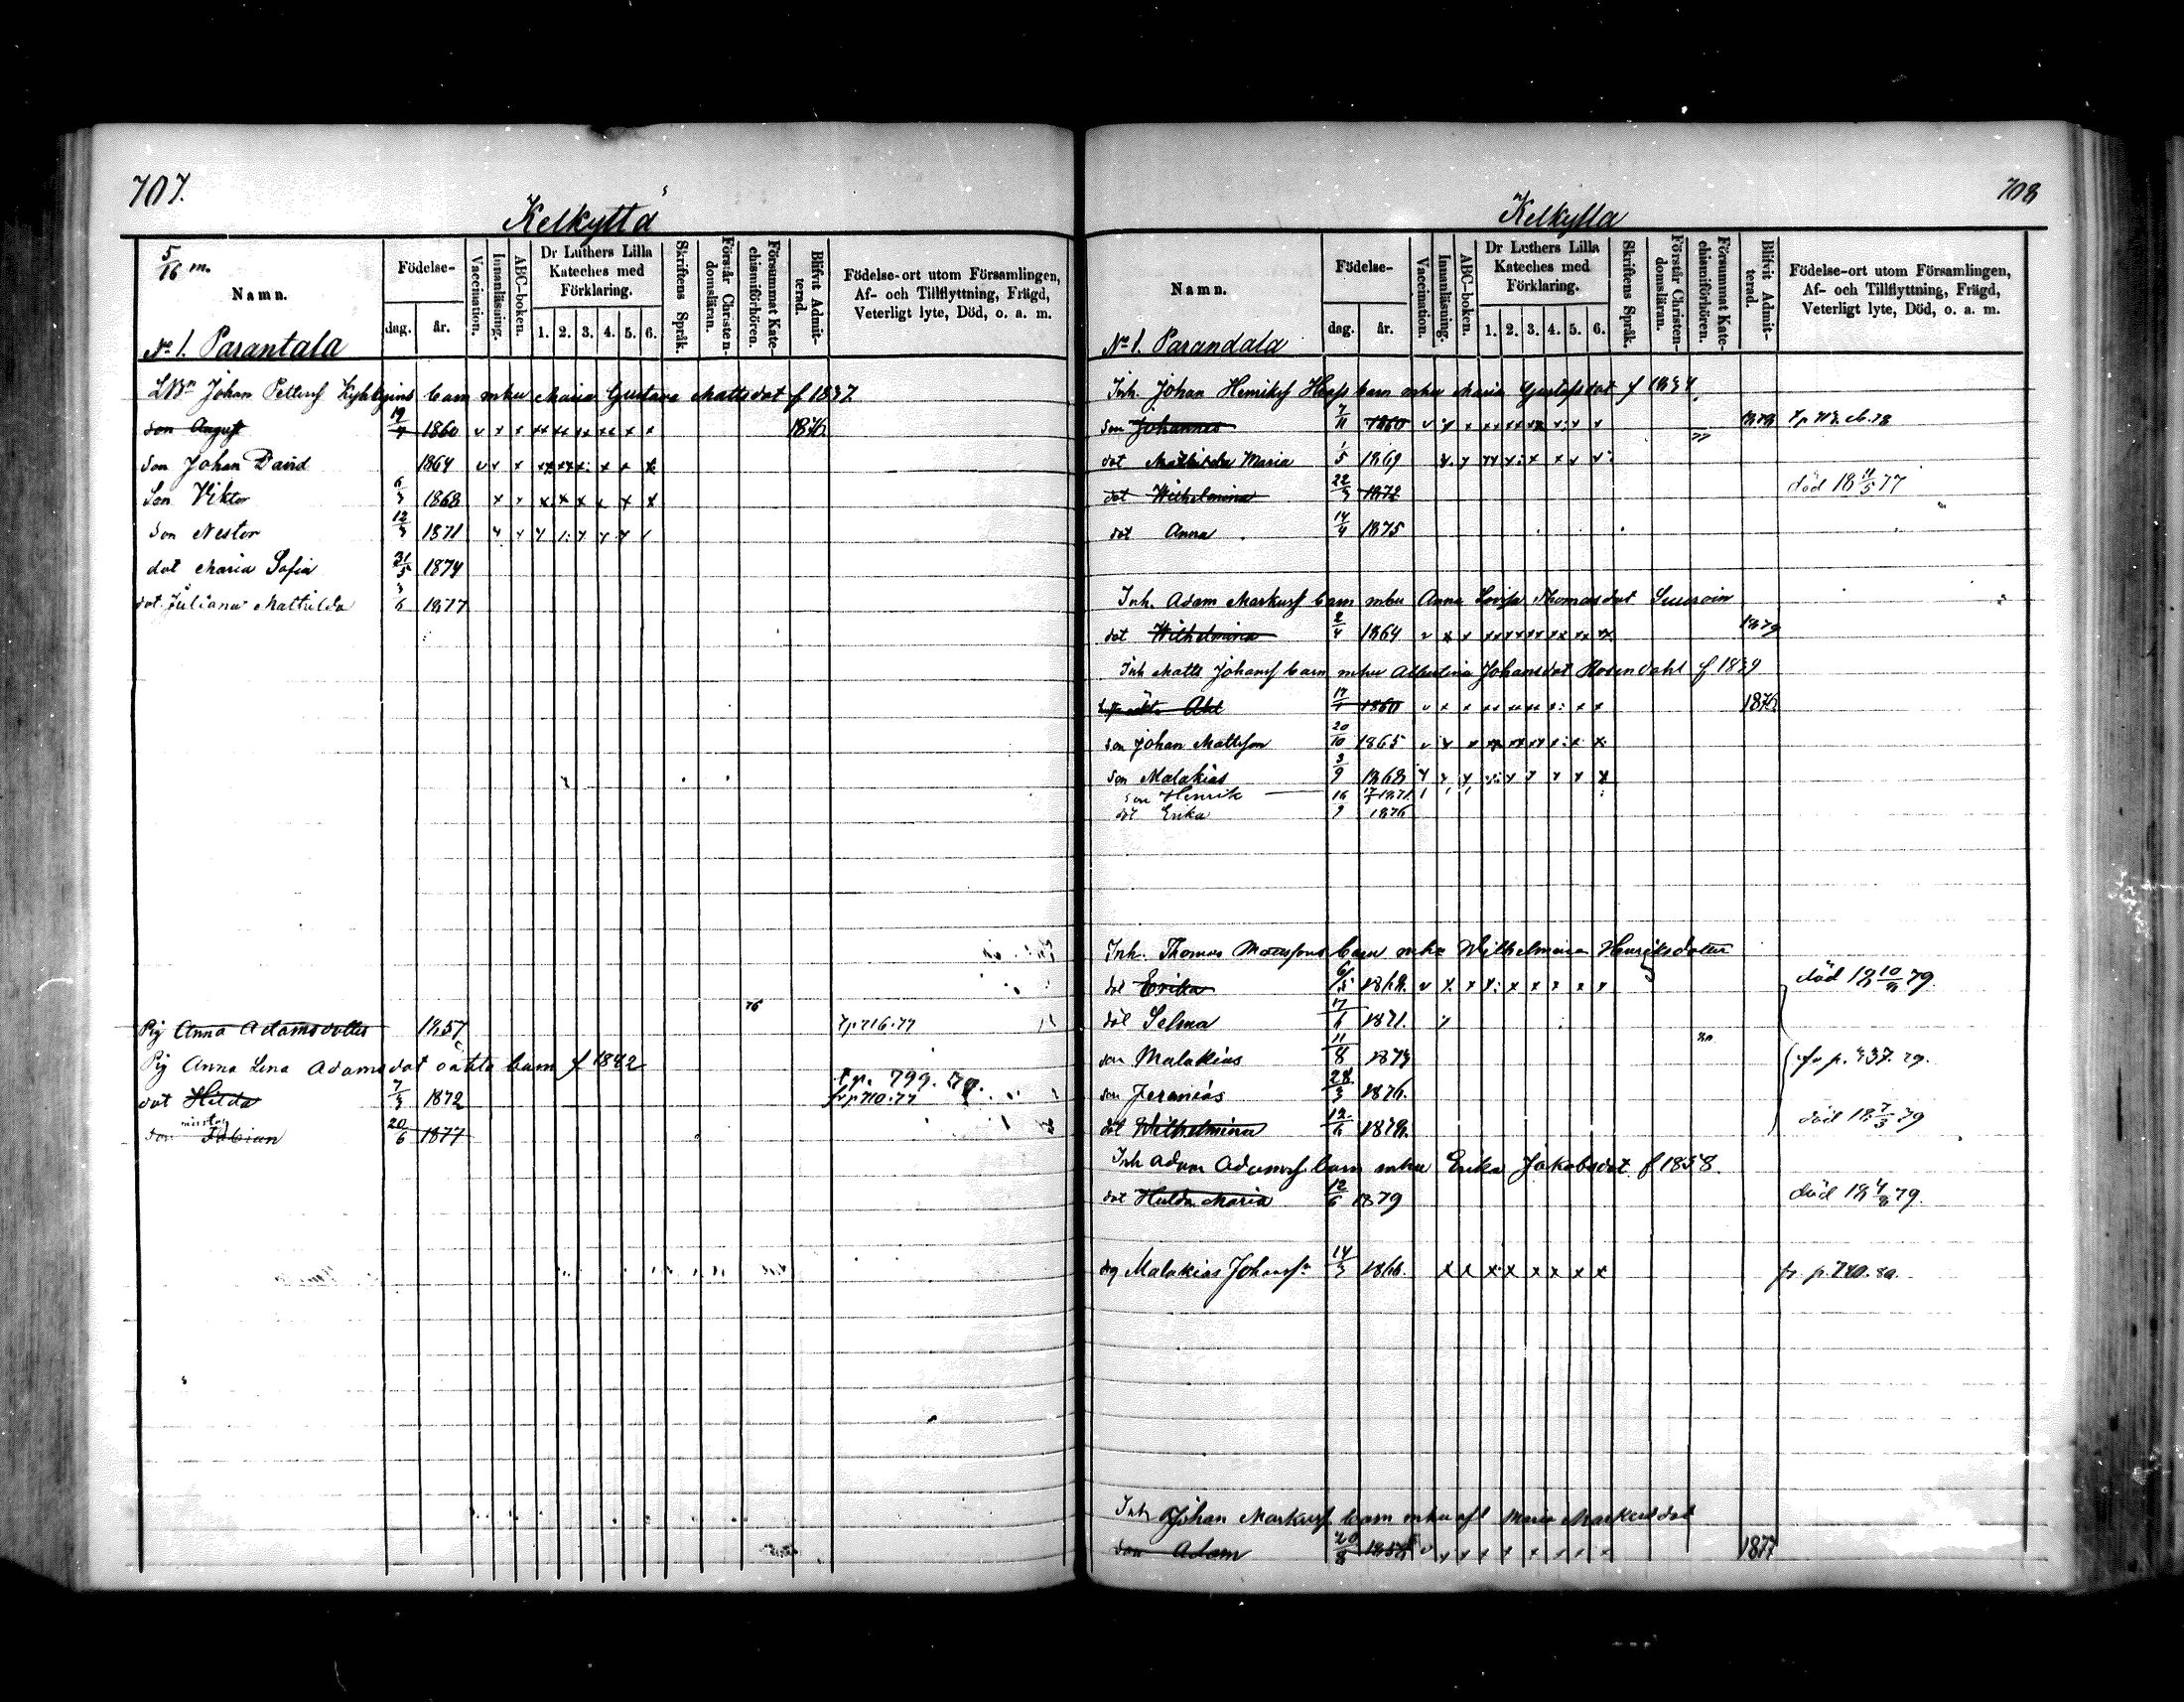 707.
Kelkyttä
5/16 m.
Namn.
Födelse-
dag. år.
Vaccination.
Innanläsning.
ABC-boken.
Dr Luthers Lilla Kateches med Förklaring.
1. 2. 3. 4. 5. 6.
Skriftens Språk.
Förstår Christendomsläran.
Försummat Katechismiförhören.
Blifvit Admitterad.
Födelse-ort utom Församlingen, Af- och Tillflyttning, Frägd, Veterligt lyte, Död, o. a. m.
No 1. Parantala
Johan barn mhu Maria Gustava Mattsdot f 1837
son August 19/4 1860 v x x xx xx xx xx x x 1876
son Johan David 1864 v x x xx xx x: x x x
Son Viktor 6/3 1868 x x x x x x x x
Son Nestor 12/3 1871
dot Maria Sofia 31/5 1874
dot. Juliana Mathilda 3/6 1877
76
Pig Anna Adamsdotter 1857 Tp 716.77
Pig Anna Lena Adamsdot oäkta barn f 1842
t p. 799. 79.
dot Hilda 7/3 1872 fr p 710.77
son Fabian 20/6 1877
708
Kelkyttä
Namn.
Födelse-
dag. år.
Vaccination.
Innanläsning.
ABC-boken.
Dr Luthers Lilla Kateches med Förklaring.
1. 2. 3. 4. 5. 6.
Skriftens Språk.
Förstår Christendomsläran.
Försummat Katechismiförhören.
Blifvit Admitterad.
Födelse-ort utom Församlingen, Af- och Tillflyttning, Frägd, Veterligt lyte, Död, o. a. m.
No 1. Parandala
Inh. Johan Henriksf barn mhu Maria Gustafsdot f 1834
son Johannes 7/11 1860 1878
77
dot Mathilda Maria 1/5 1869
dot Wilhelmina 22/3 1872 död 18 11/5 77
dot Anna 14/4 1875
Inh. Adam Markusf barn mhu Anna Lovisa Thomasdot
dot Wilhelmina 2/4 1864 1879
Inh Matts Johansf barn mhu Albertina Johansdot Rosendahl f 1839
Abel 17/1 1860 1876
son Johan Mattsson 20/10 1865
son Malakias 3/9 1868
son Henrik 1871
dot Erika 9 1876
Inh. Thomas barn mhu Wilhelmina Henriksdotter
dot Erika 6/5 1868. v x x x: x x x x x död 18 10/8 79.
dot Selma 17/6 1871.
son Malakias 11/8 1873 fr p. 737. 79.
son Jeremias 28/3 1876.
dot Wilhelmina 12/6 1878. död 18 7/3 79
Inh Adam Adamsf barn mhu Erika Jakobsdot f 1858.
dot Hulda Maria 12/6 1879 död 18 4/8 79.
drg Malakias Johansf. 14/3 1866. x x x x x x x x fr. p. 740. 80.
Inh Johan Markusf barn mhu afl Maria Markusdot
son Adam 20/8 1877